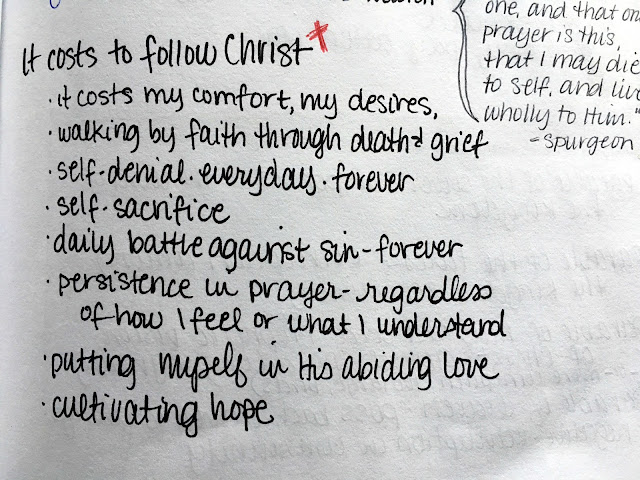 It costs to follow Christ
· it costs my comfort, my desires,
· walking by faith through death & grief
· self-denial. everyday. forever
· self-sacrifice
· daily battle against sin - forever
· persistence in prayer - regardless
of how I feel or what I understand
· putting myself in His abiding love
· cultivating hope
one, and that on
prayer is this,
that I may die
to self, and live
wholly to Him."
- Spurgeon